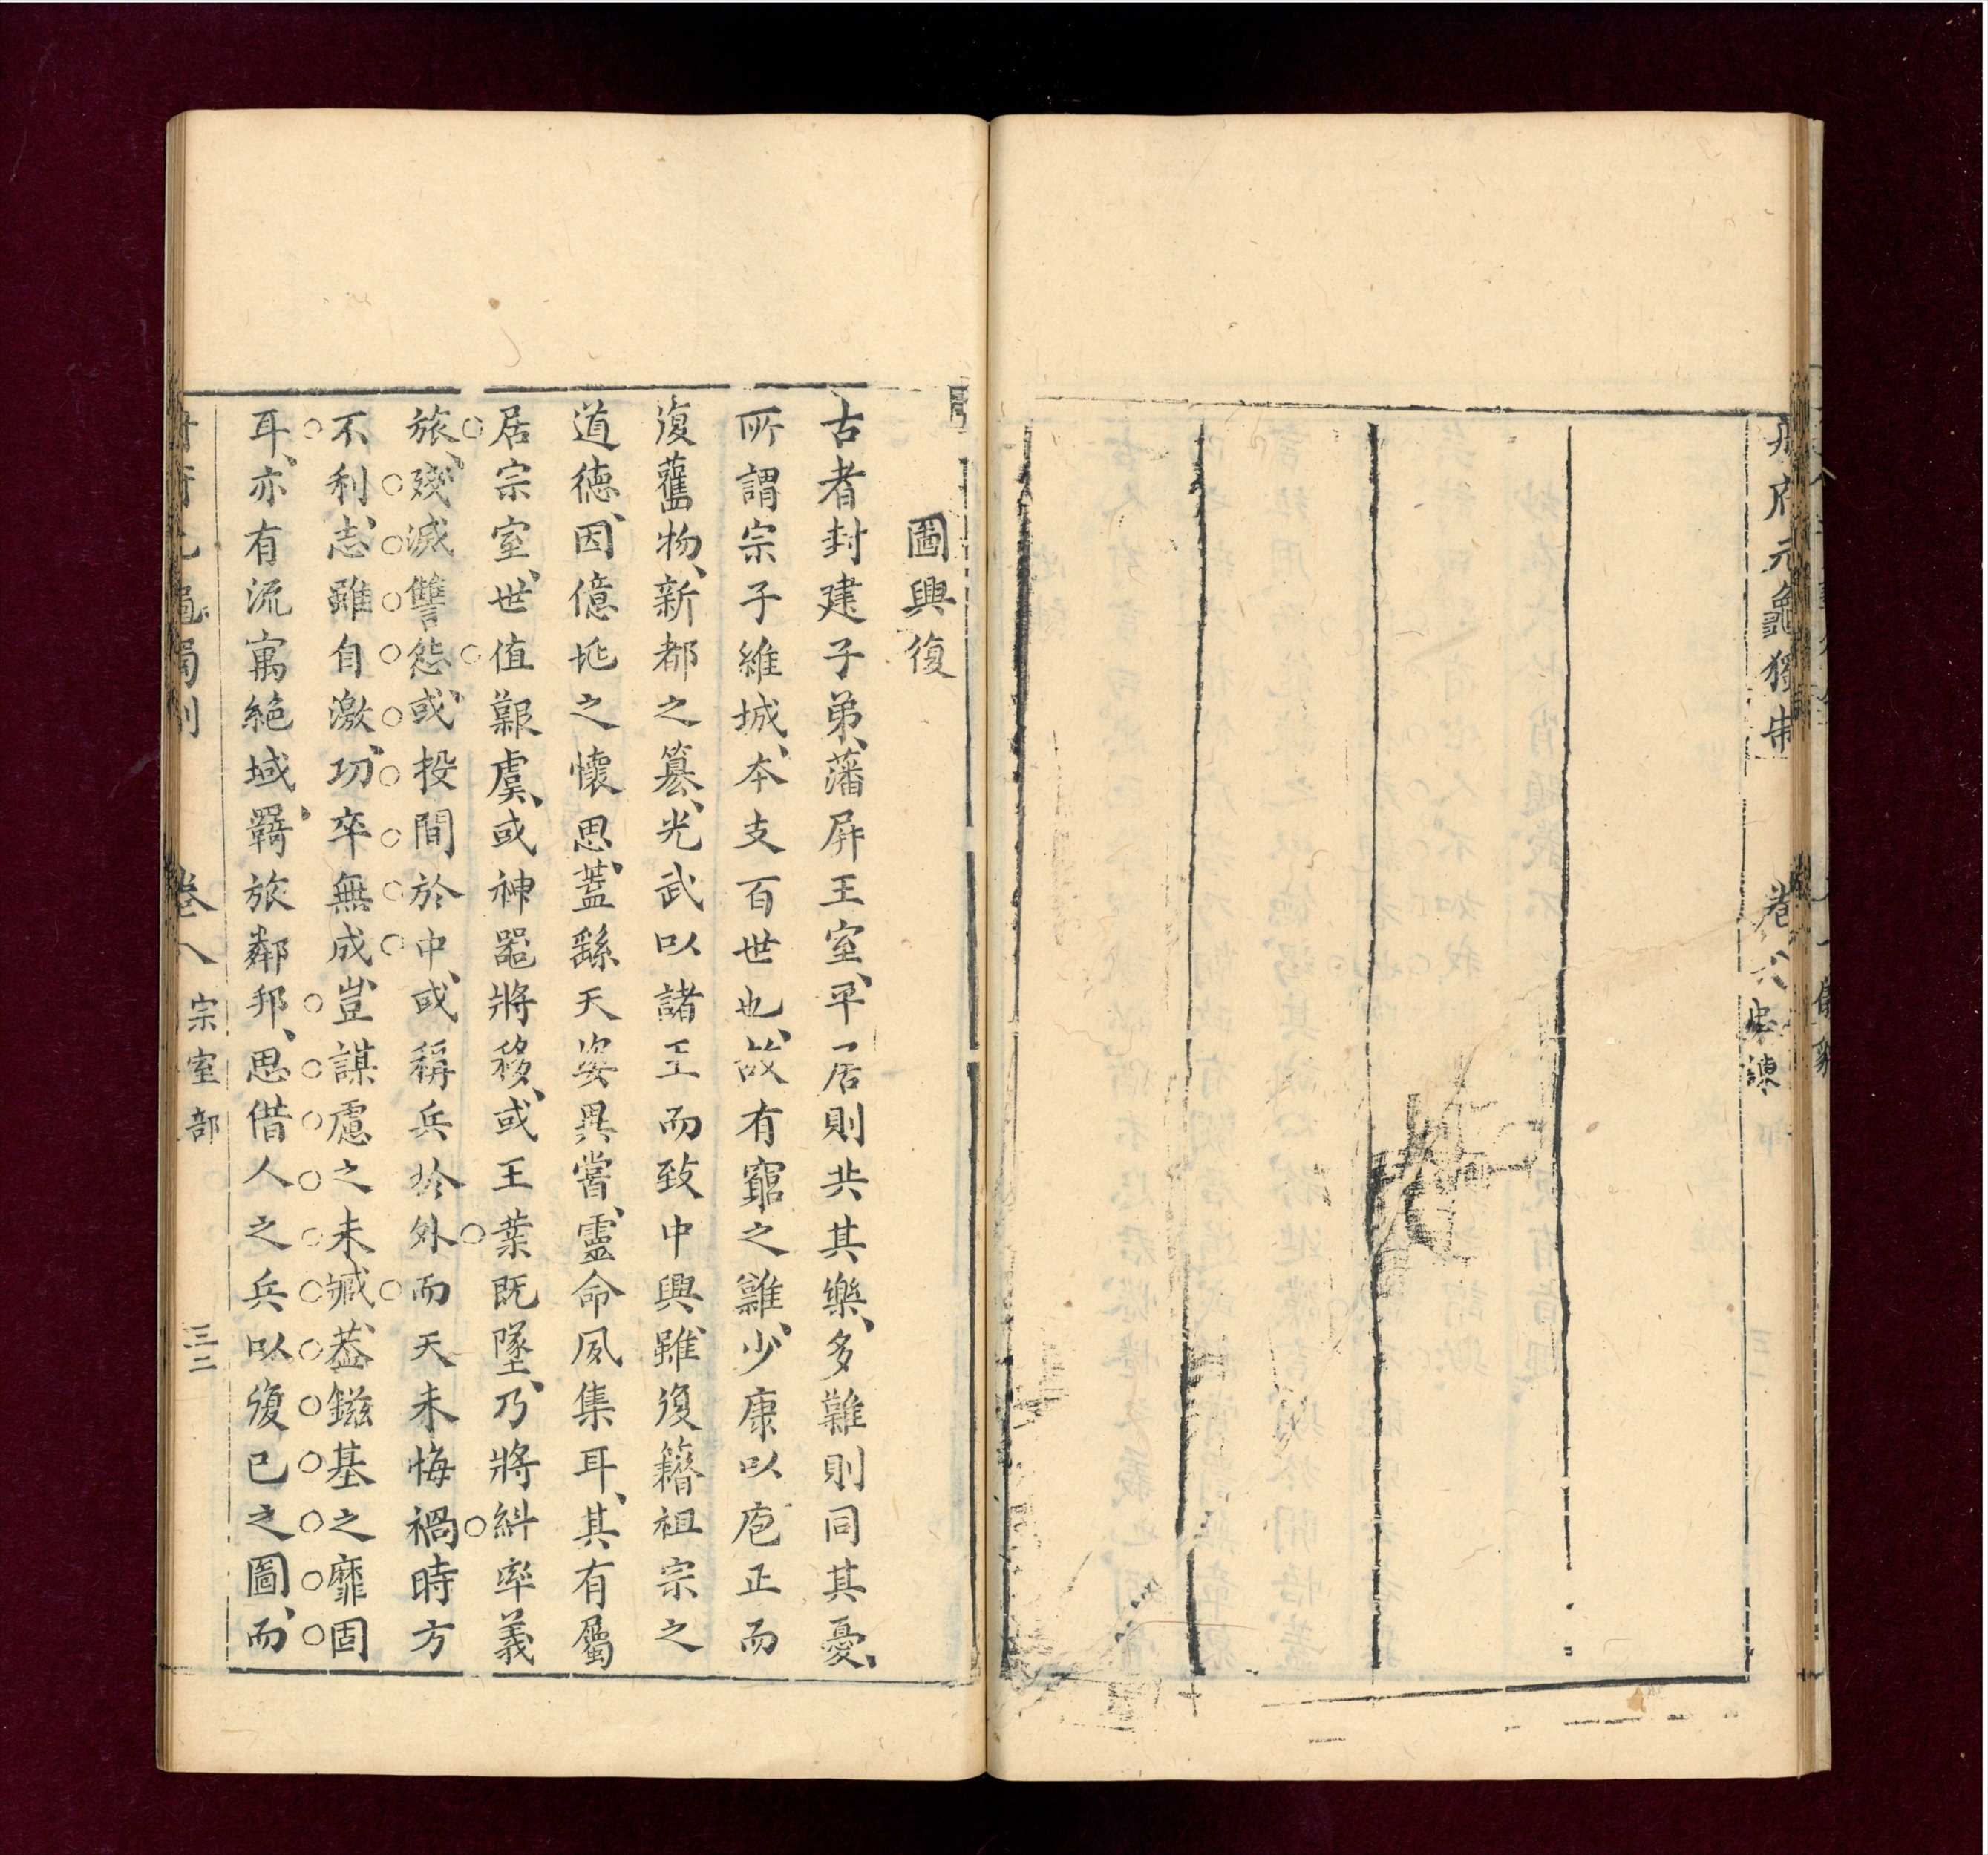 冊府元龜獨
卷八
諫
圖興復
古者封建子弟、藩屏王室、平居則共其樂、多難則同其憂、
所謂宗子維城、本支百世也、故有窮之難、少康以庖正而
復舊物、新都之篡、光武以諸王而致中興、雖復籍祖宗之
道德、因億兆之懷思、蓋繇天姿異嘗、靈命夙集耳、其有屬
居宗室、世值艱虞、或神器將移、或王業既墜、乃將糾率義
旅、殘滅讐怨、或投間於中、或稱兵於外、而天未悔禍、時方
不利、志雖自激、功卒無成、豈謀慮之未臧、葢鎡基之靡固
耳、亦有流寓絕域、羇旅鄰邦、思借人之兵以復已之圖、而
卷八 宗室部 三二